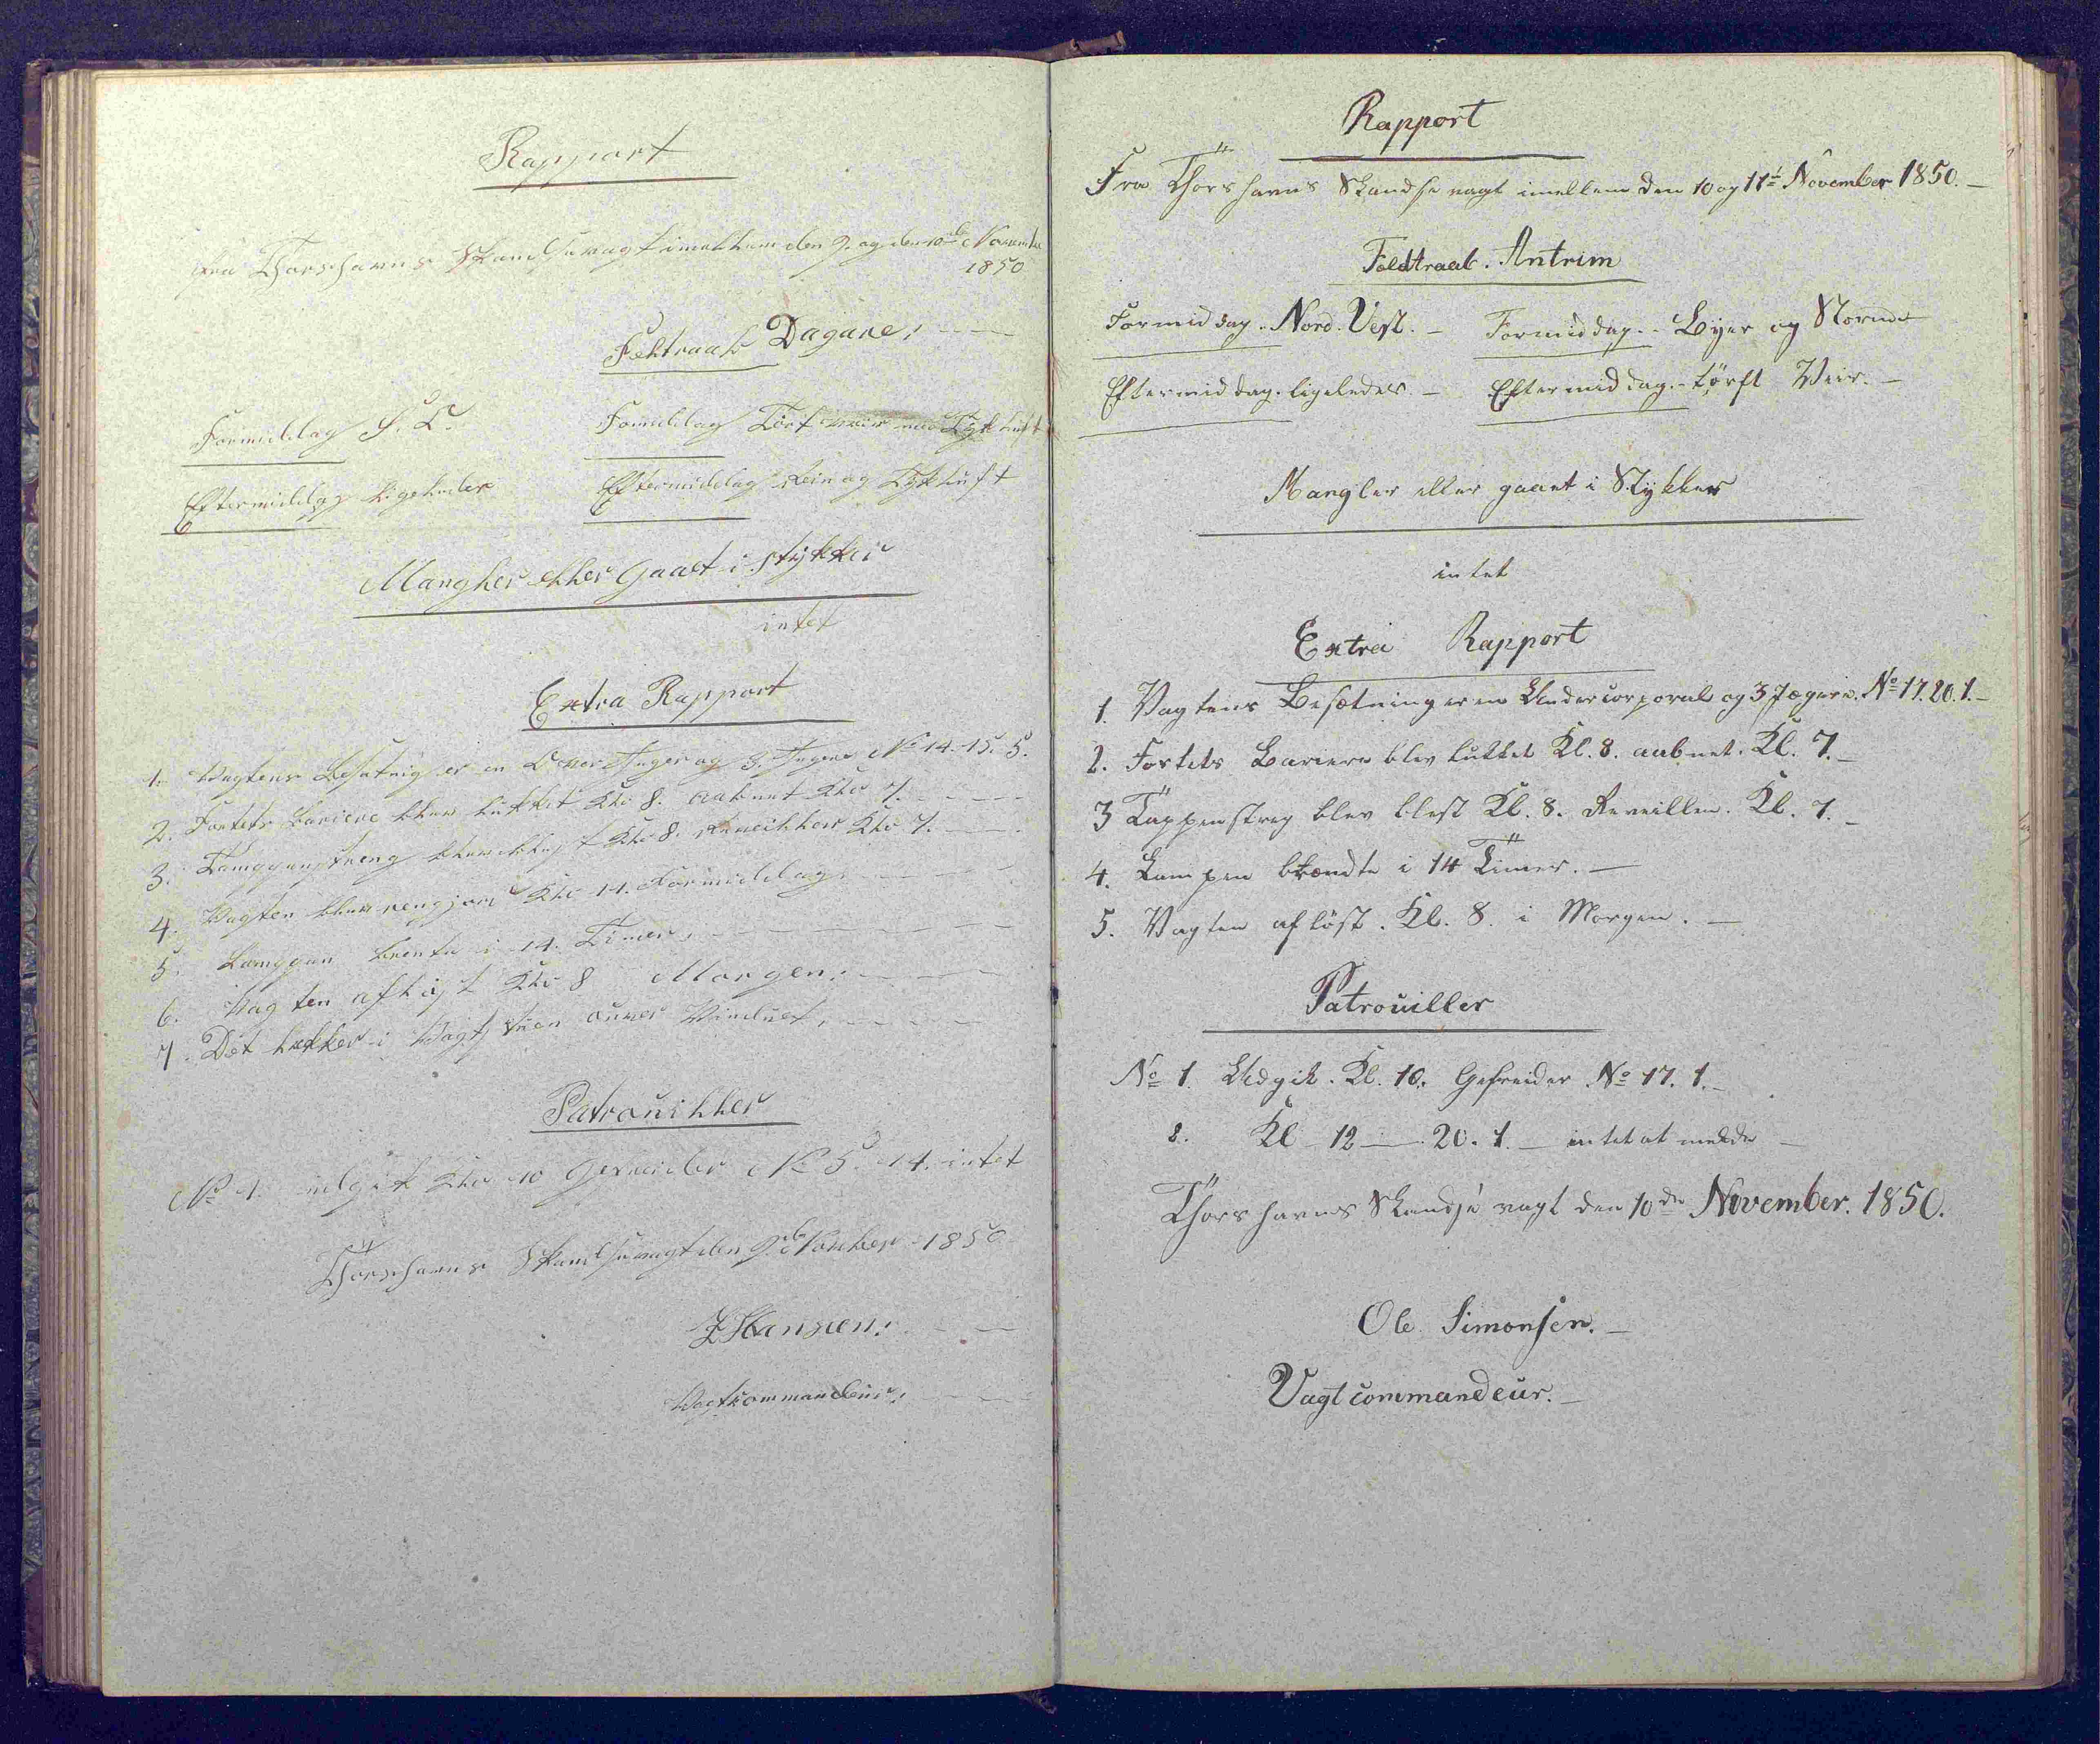 Rapport
Fra Thorshavns Skandsevagt imellem den 9. og den 10de November
1850
Feltraab Dagare,
Formiddag S. O. Formiddag Tört veir med Tyk luft
Eftermiddag ligeledes Eftermiddag Rein og Tykluft
Mangler eller Gaaet i stykker
intet
Extra Rapport
1. Vagtens Besatnig er en Over Jager og 3. Jagere No 14. 15. 5.
2. Fortets Bariere blev lukket Klo 8. aabnet Klo 7.
3. blev blæst Klo 8. Reveillen Klo 7.
4. Vagten blev rengjort Klo 11. Formiddag.
5. Lampen brente i 14. Timer,
6. Vagten aflöst Klo 8 Morgen.
7. Det lækker i Vagtstuen over Vinduet,
Patrouiller
No 1. udgik Klo 10 Gefreider No 5. 14. intet
Thorshavns Skandsevagt den 9de November 1850
J Hansen.
Vagtkommandeur,
Rapport
Fra Thorshavns Skandse vagt imellem den 10 og 11te November 1850.
Feldtraab. Antrim
Formiddag. Nord. Vest. Formiddag. Byer og Storm
Eftermiddag. ligeledes. Eftermiddag. törft Veir.
Mangler eller gaaet i Stykker
intet
Extra Rapport
1. Vagtens Besætning er en Undercorporal og 3 Jægere. No 17. 20. 1.
2. Fortets Bariere blev lukket Kl. 8. aabnet. Kl. 7.
3 Tappenstreg blev blest Kl. 8. Reveillen. Kl. 7.
4. Lampen brændte i 14 Timer.
5. Vagten aflöst. Kl. 8. i Morgen.
Patrouiller
No 1. Udgik. Kl. 10. Gefreider No 17. 1.
2. Kl 12 20. 1. intet at melde
Thorshavns Skandse vagt den 10de November. 1850.
Ole Simonsen.
Vagtcommandeur.